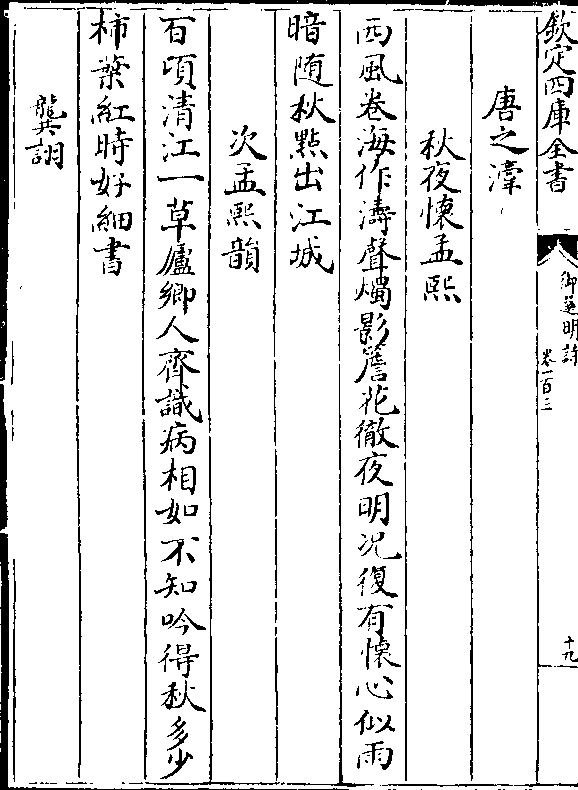 欽定四庫全書
御選明詩
卷一百三
十九
唐之淳
秋夜懷孟熙
西風卷海作濤聲燭影簷花徹夜明况復有懷心似雨
暗随秋㸃出江城
次孟熙韻
百頃清江一草廬鄉人齊識病相如不知吟得秋多少
柿葉紅時好細書
龔詡